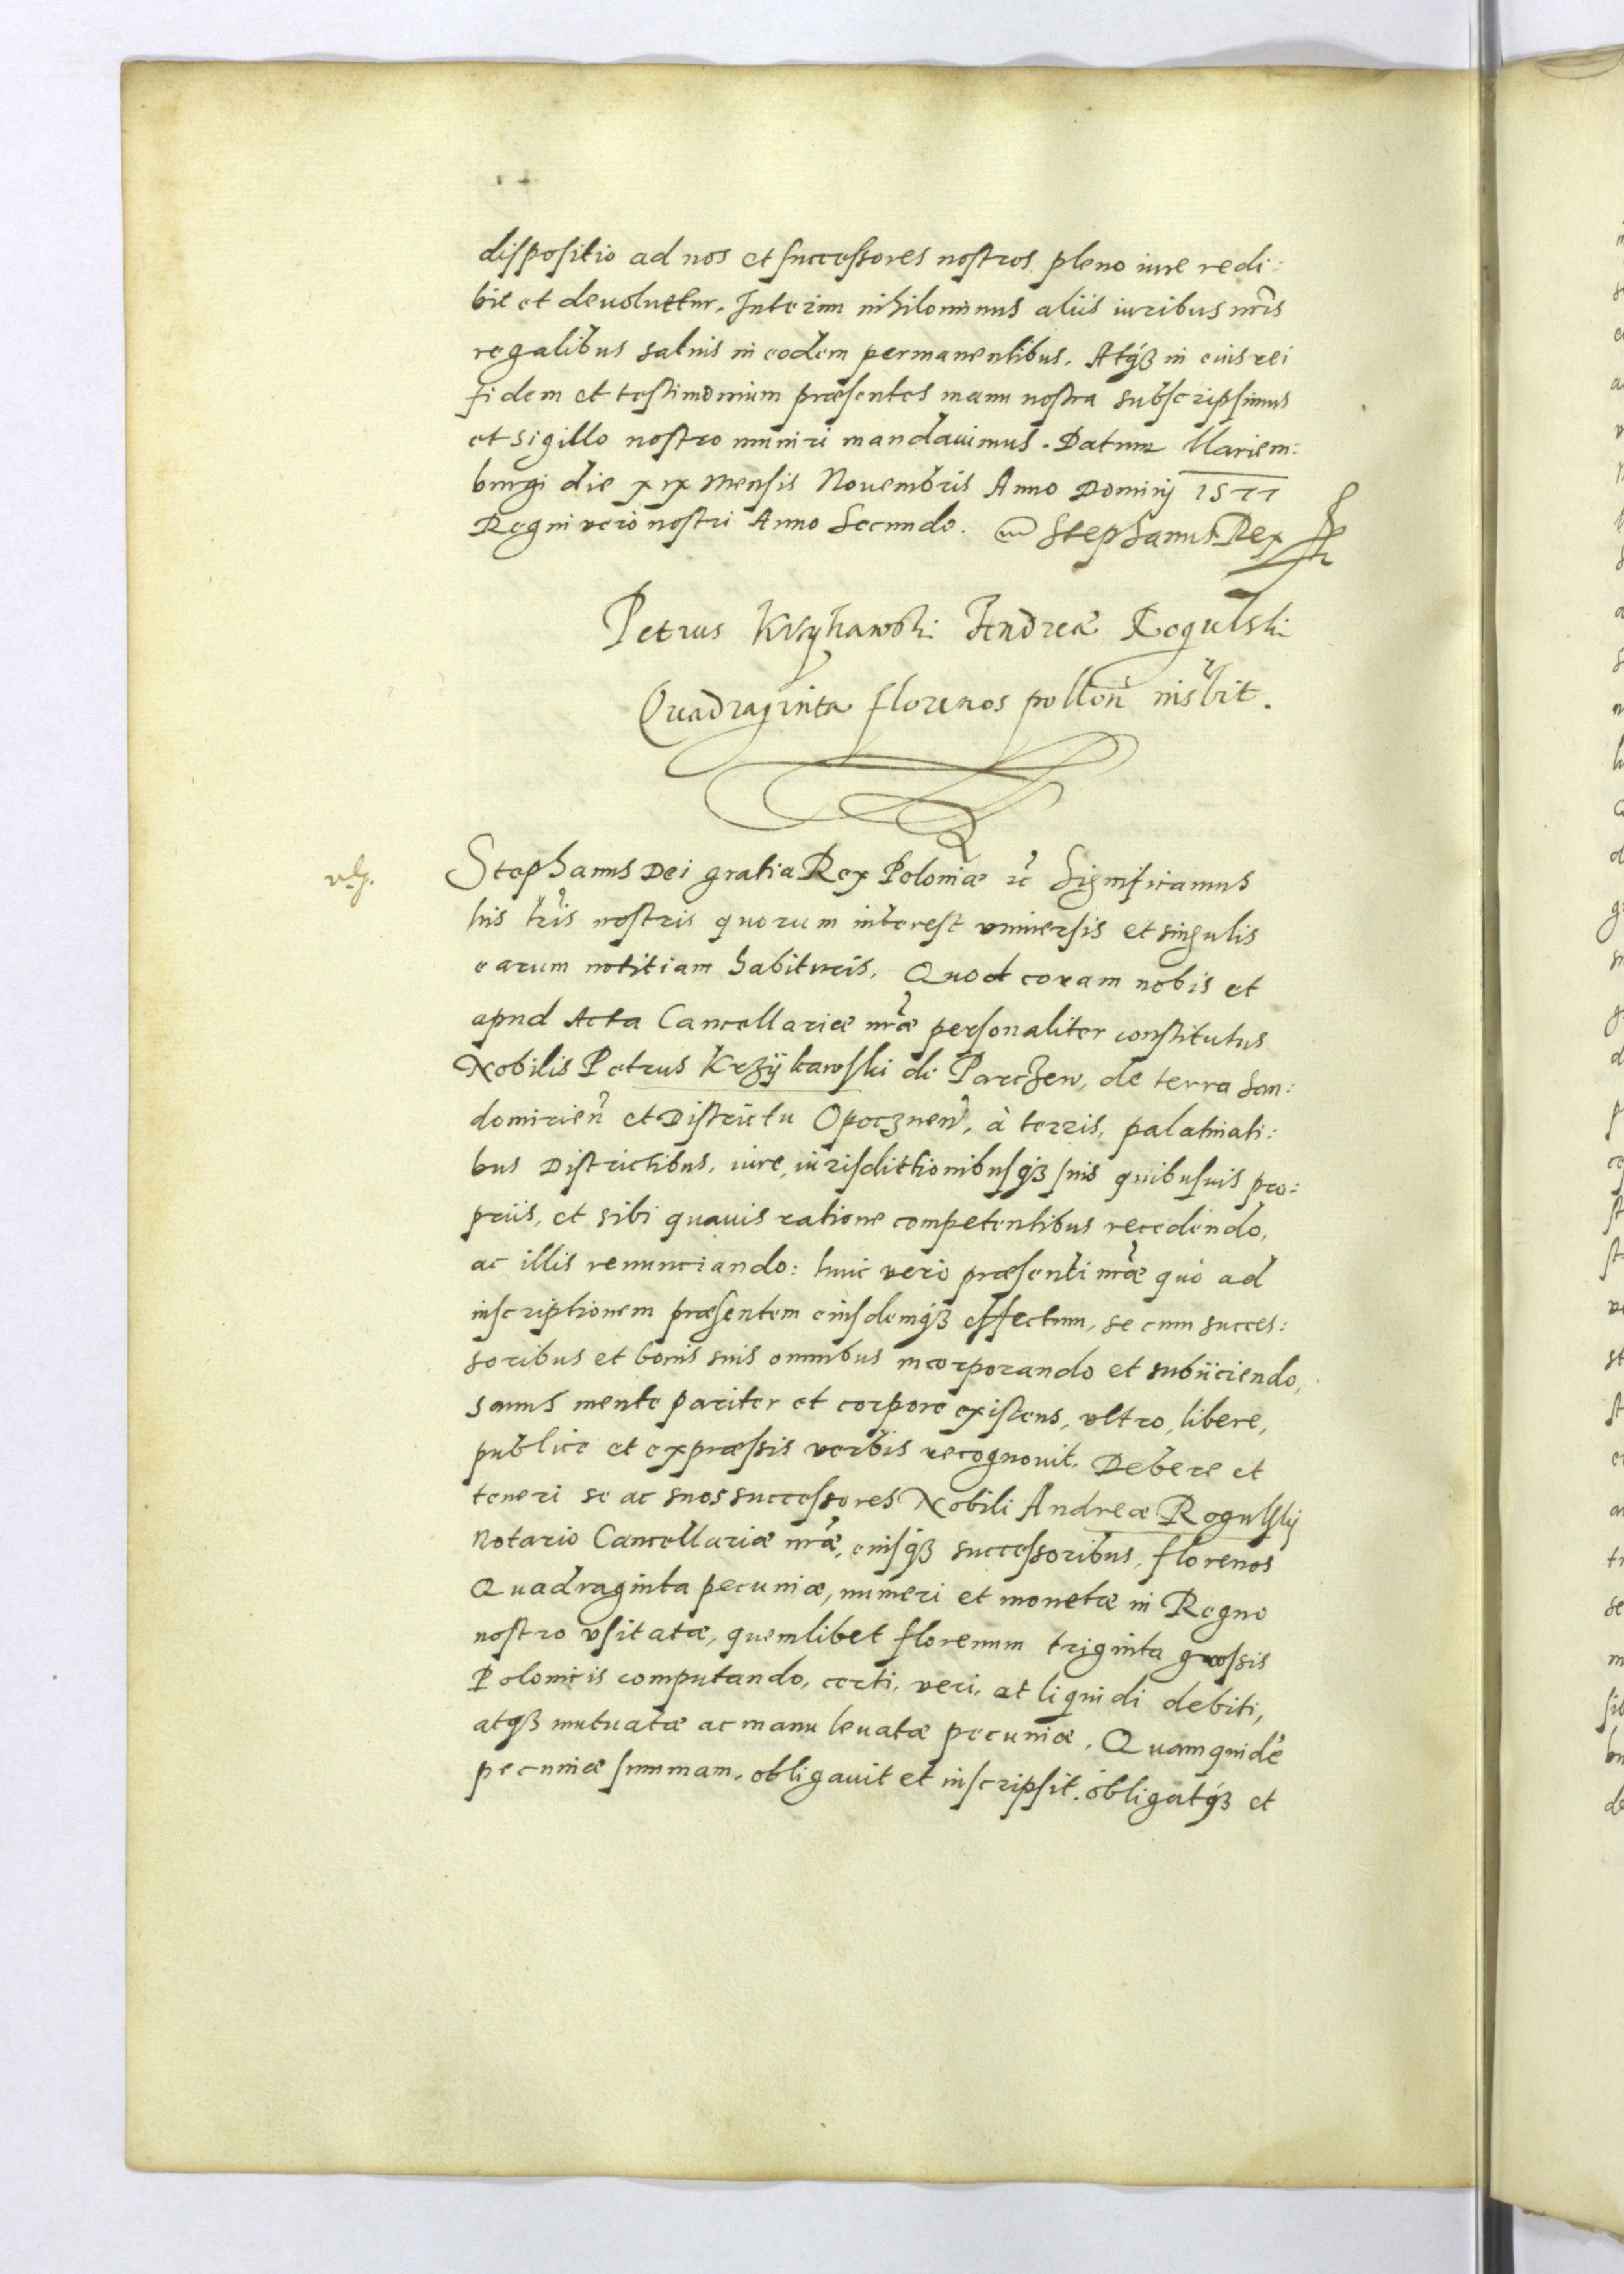 dispositio ad nos et successores nostros pleno iure redi:
bit et devoluetur. Interim nihilominus aliis iuribus nris
regalibus saluis in eodem permanentibus. Atqȝ in eius rei
fidem et testimonium præsentes manu nostra subscripsimus
et sigillo nostro muniri mandauimus. Datum Mariem:
burgi die xix Mensis Nouembris Anno Dominij 1577
Regni vero nostri Anno Secundo. Stephanus Rex
Petrus Krzykawski Andreæ Rogulski
Quadraginta florenos pollon inscbit.
Stephanus Dei gratia Rex Poloniæ etc Significamus
his lris nostris quorum interest vniuersis et singulis
earum notitiam habituris. Quod coram nobis et
apud Acta Cancellariæ nræ personaliter constitutus
Nobilis Petrus Krzÿkawski de Parczew, de terra San:
domirien et Districtu Opocznen, à terris, palatinati:
bus Districtibus, iure, iurisdictionibusqȝ suis quibusuis pro:
priis, et sibi quauis ratione competentibus recedendo,
ac illis renunciando: huic vero præsenti nræ quò ad
inscriptionem præsentem eiusdemqȝ effectum, se cum succes:
soribus et bonis suis omnibus incorporando et subiiciendo,
sanus mente pariter et corpore existens, vltro, libere,
publice et expræssis verbis recognouit. Debere et
teneri se ac suos successores Nobili Andreæ Rogulskij
Notario Cancellariæ nræ, eiusqȝ successoribus, florenos
Quadraginta pecuniæ, numeri et monetæ in Regno
nostro vsitatæ, quemlibet florenum triginta grossis
Polonicis computando, certi, veri, at liquidi debiti,
atqȝ mutuatæ ac manu leuatæ pecuniæ. Quamquidē
pecuniæ summam, obligauit et inscripsit. obligatqȝ et